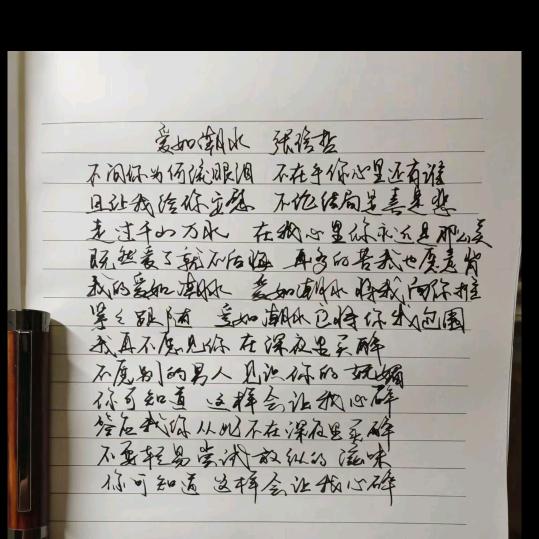 爱如潮水 张信哲
不问你为何流眼泪 不在乎你心里还有谁
且让我给你安慰 不论结局是喜是悲
走过千山万水 在我心里你永远是那么美
既然爱了就不后悔 再多的苦我也愿意背
我的爱如潮水 爱如潮水将我向你推
紧紧跟随 爱如潮水它将你我包围
我再不愿见你在深夜里买醉
不愿别的男人见识你的妩媚
你可知道 这样会让我心碎
答应我你从此不在深夜里买醉
不要轻易尝试放纵的滋味
你可知道 这样会让我心碎